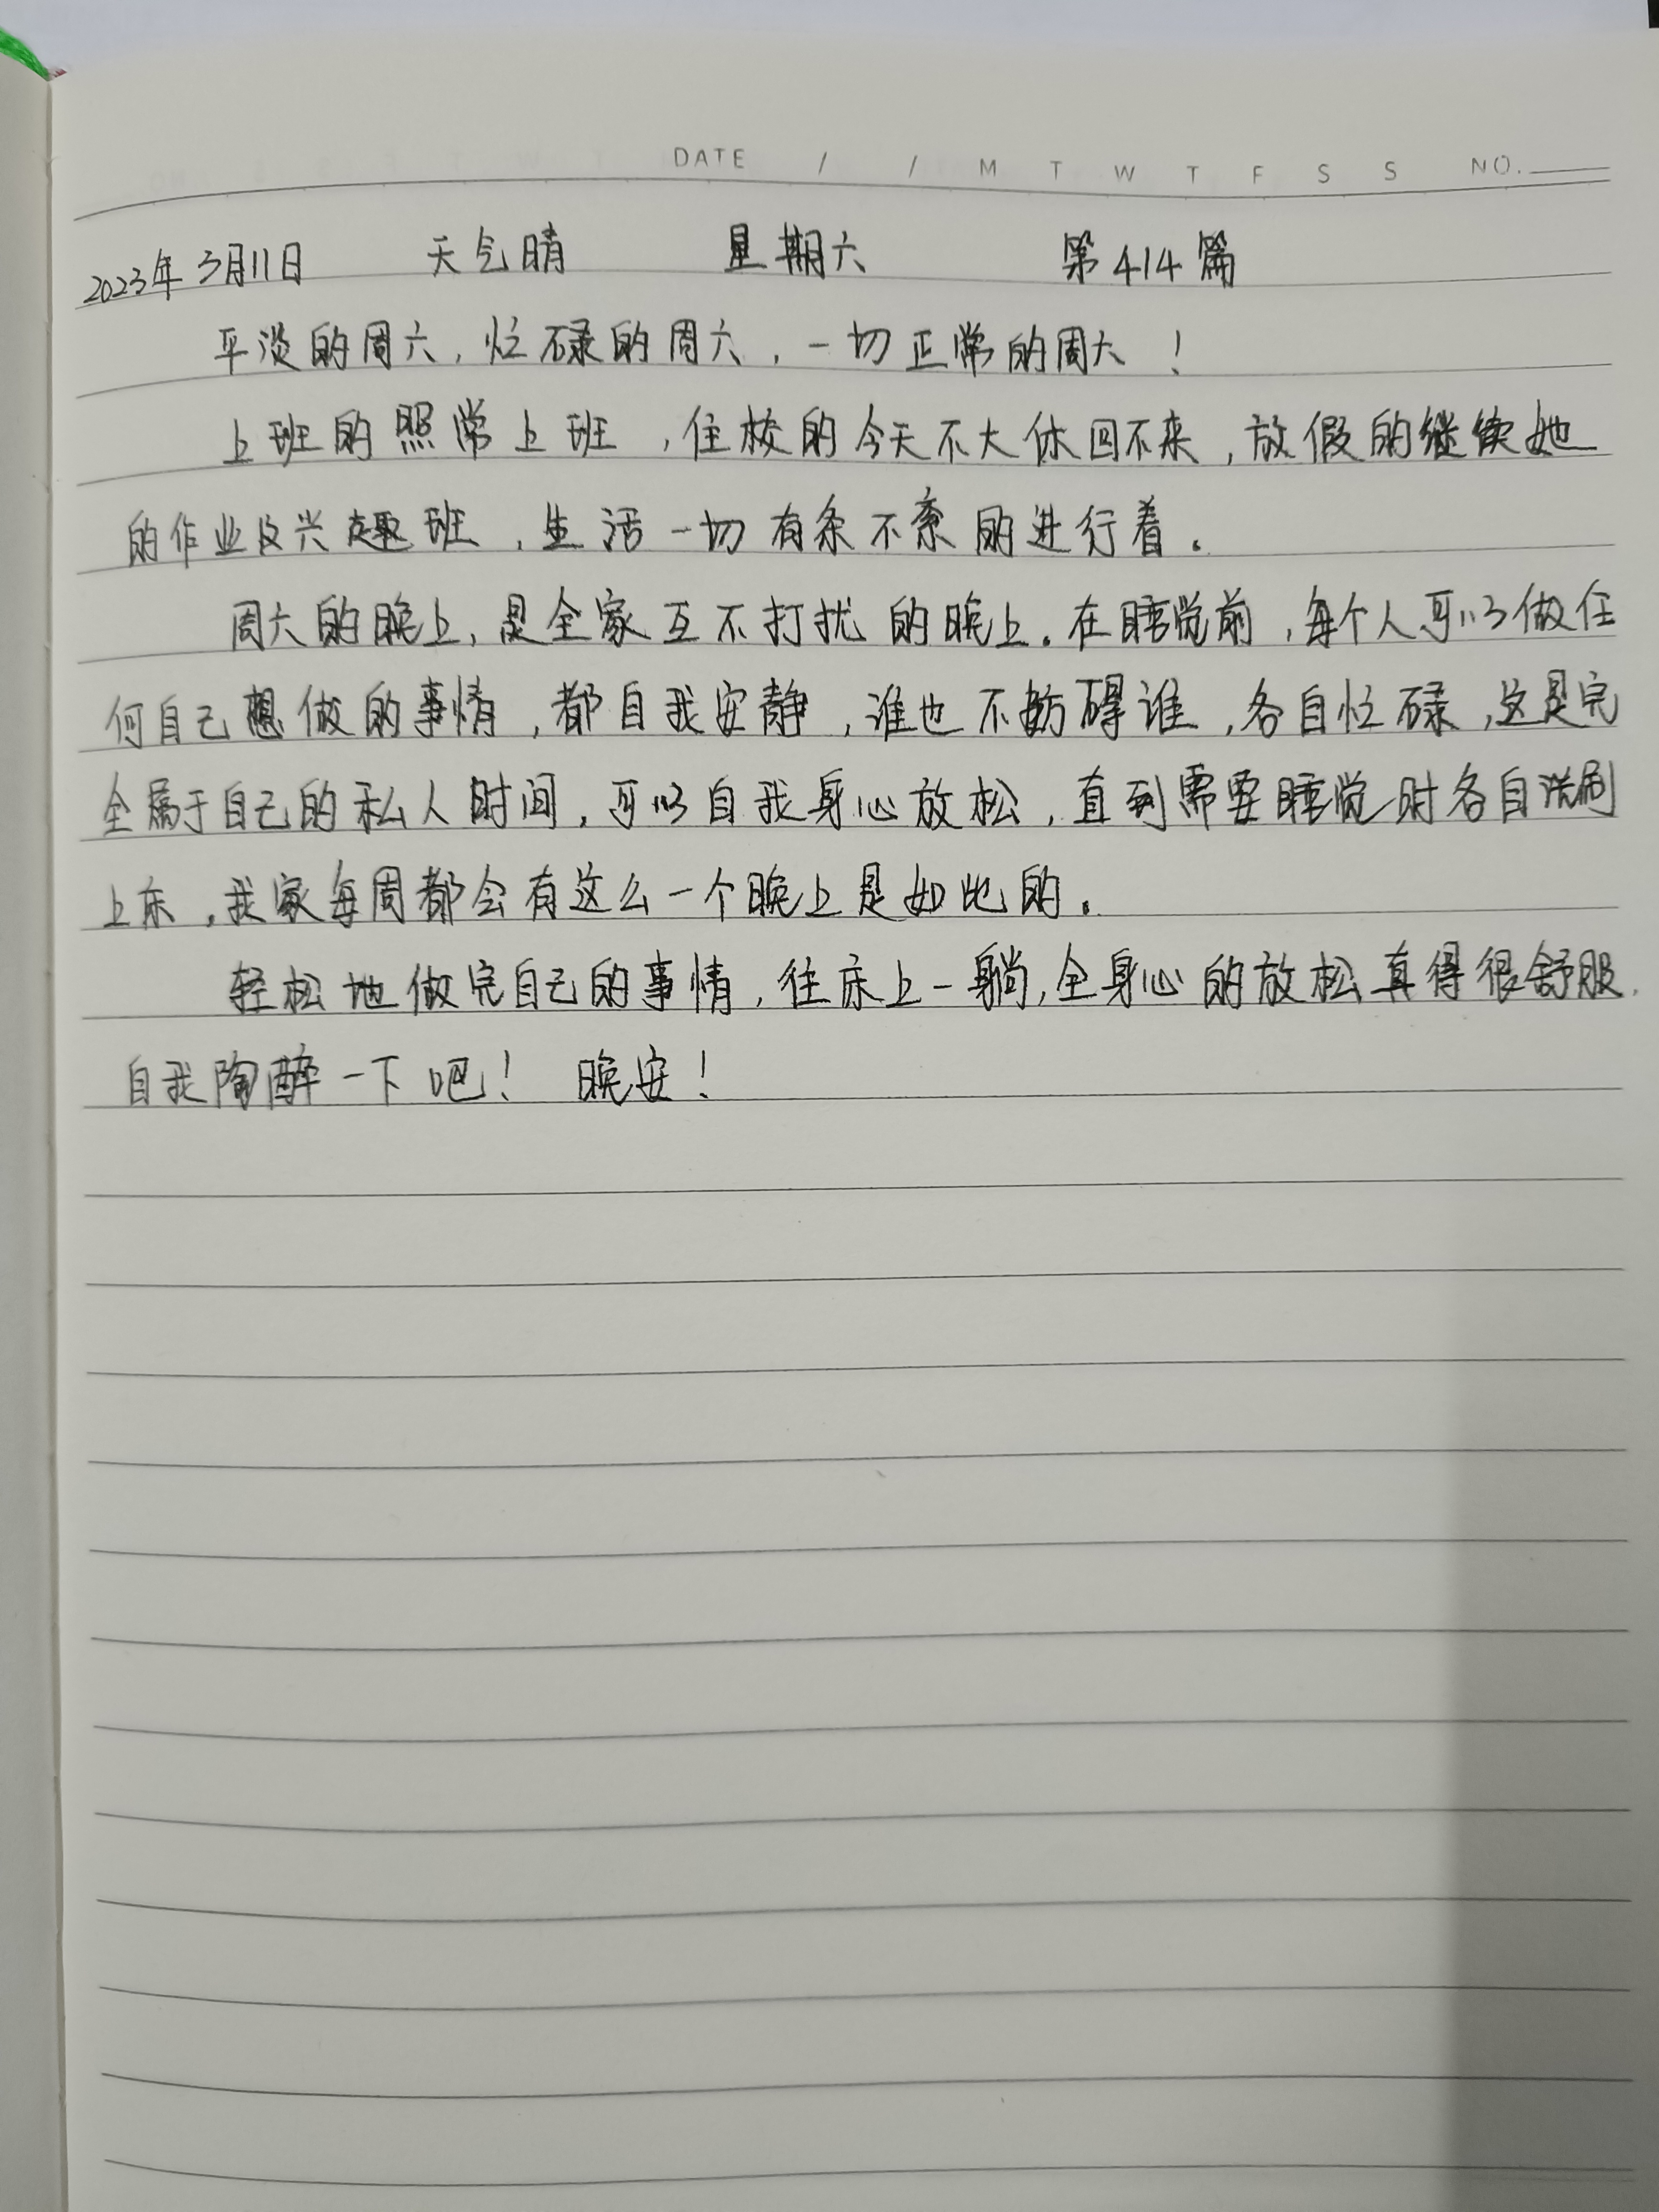 DATE / / M T W T F S S NO.
2023年3月11日 天气晴 星期六 第414篇
平淡的周六，忙碌的周六，一切正常的周六！
上班的照常上班，住校的今天不大休回不来，放假的继续她
的作业及兴趣班，生活一切有条不紊的进行着。
周六的晚上，是全家互不打扰的晚上。在睡觉前，每个人可以做任
何自己想做的事情，都自我安静，谁也不妨碍谁，各自忙碌，这是完
全属于自己的私人时间，可以自我身心放松，直到需要睡觉时各自洗刷
上床，我家每周都会有这么一个晚上是如此的。
轻松地做完自己的事情，往床上一躺，全身心的放松真得很舒服，
自我陶醉一下吧！ 晚安！